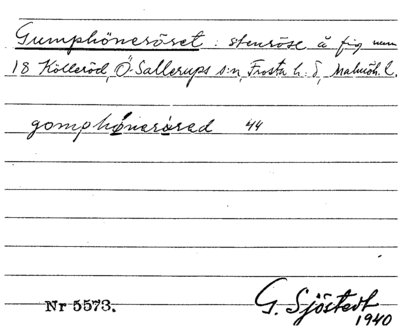 Gumphöneröset: stenröse å fig num
18 Kölleröd, Ö. Sallerups s:n, Frosta h:d, Malmöh. l.
gomphönerösed 44
Nr 5573.
G. Sjöstedt
1940